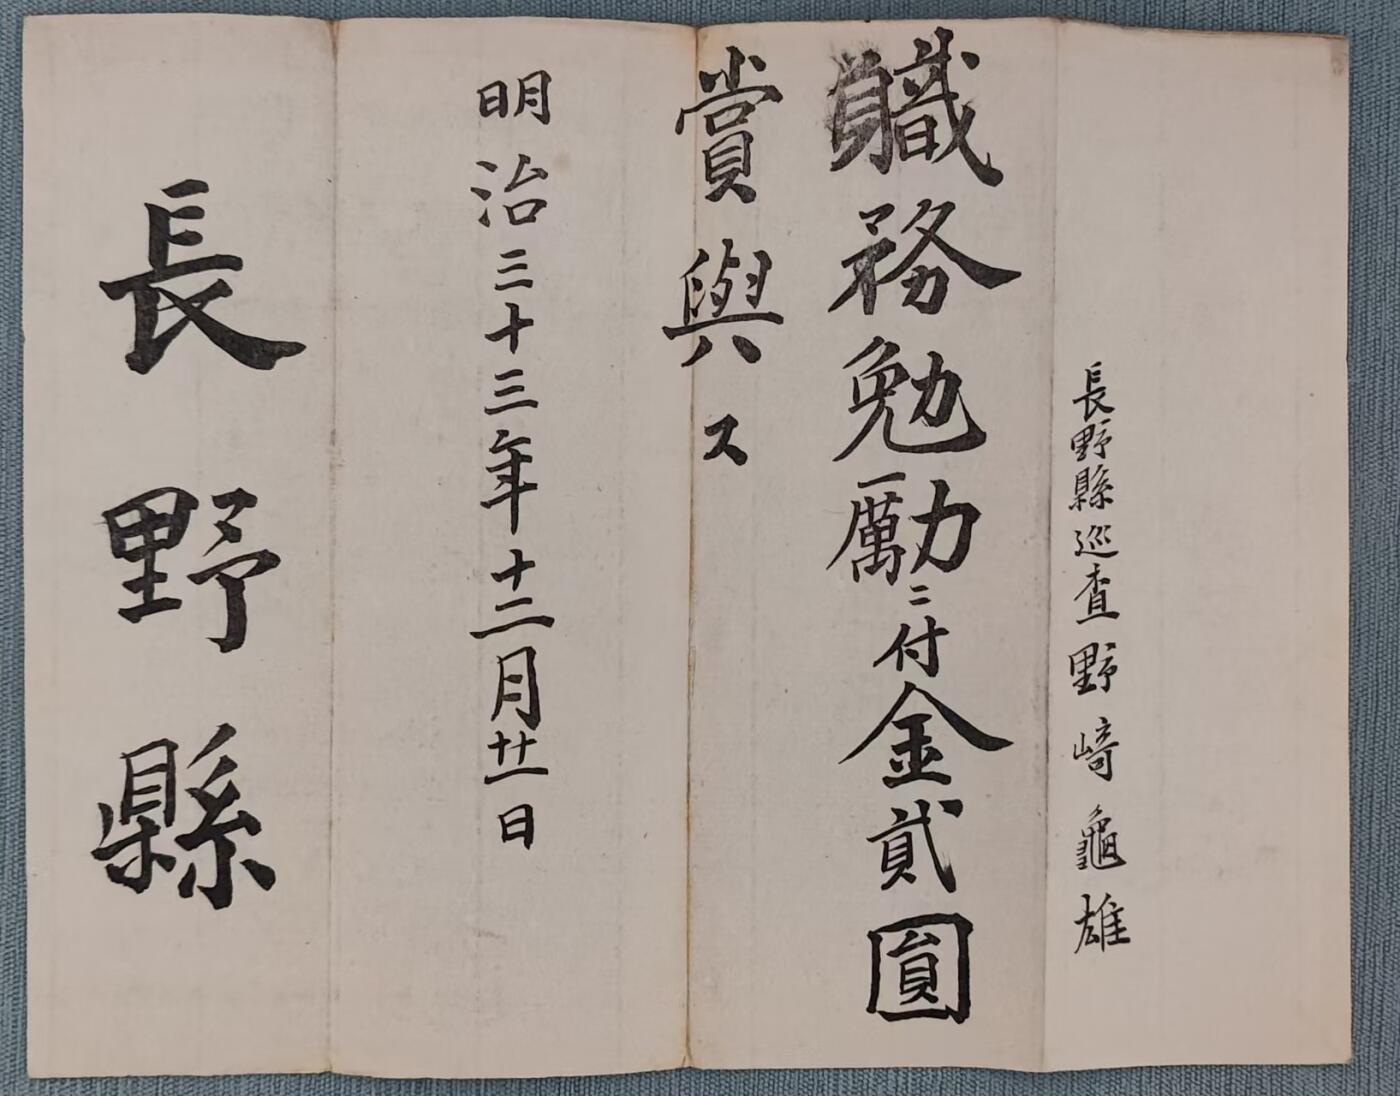 長野縣巡査野﨑龜雄
職務勉励ニ付金貳圓
賞與ス
明治三十三年十二月廿一日
長野縣